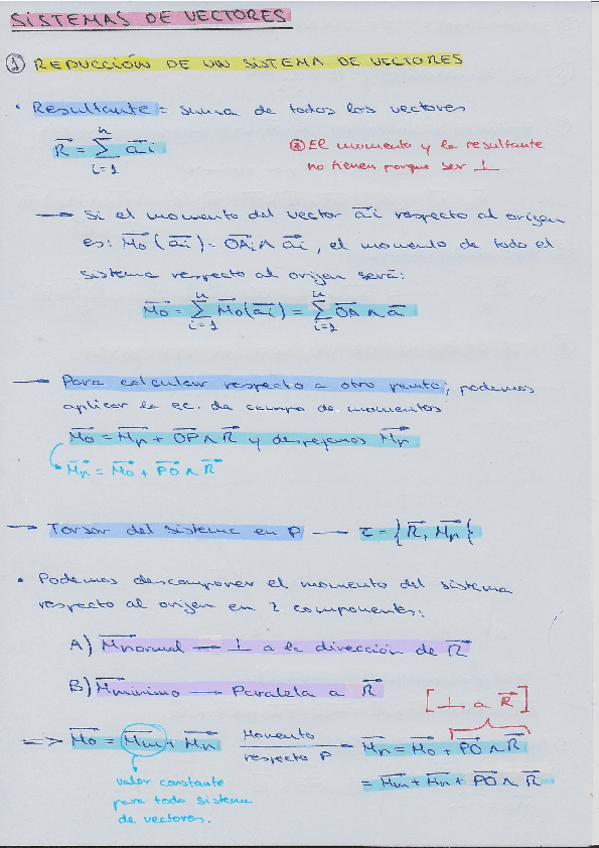 SISTEMAS DE VECTORES
① REDUCCIÓN DE UN SISTEMA DE VECTORES
• Resultante = suma de todos los vectores
R⃗ = Σ_{i=1}^{n} a⃗i
⊛ El momento y la resultante
no tienen porque ser ⊥
→ Si el momento del vector a⃗i respecto al origen
es: M⃗o (a⃗i) = OA⃗i ∧ a⃗i, el momento de todo el
sistema respecto al origen será:
M⃗o = Σ_{i=1}^{n} M⃗o(a⃗i) = Σ_{i=1}^{n} OA⃗ ∧ a⃗
→ Para calcular respecto a otro punto; podemos
aplicar la ec. de campo de momentos
M⃗o = M⃗p + OP⃗ ∧ R⃗ y despejamos M⃗p
M⃗p = M⃗o + PO⃗ ∧ R⃗
→ Torsor del sistema en P → τ = {R⃗, M⃗p{
• Podemos descomponer el momento del sistema
respecto al origen en 2 componentes:
A) M⃗normal → ⊥ a la dirección de R⃗
B) M⃗mínimo → Paralela a R⃗
[⊥ a R⃗]
=> M⃗o = M⃗m + M⃗n Momento respecto P M⃗p = M⃗o + PO⃗ ∧ R⃗
= M⃗m + M⃗n + PO⃗ ∧ R⃗
valor constante
para todo sistema
de vectores.